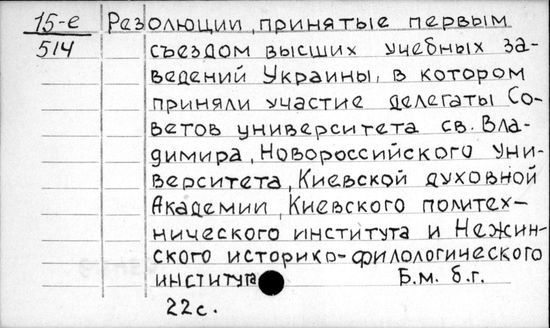 15-е Резолюции, принятые первым
514 съездом высших учебных за-
ведений Украины, в котором
приняли участие делегаты Со-
ветов университета св. Вла-
димира, Новороссийского уни-
верситета, Киевской духовной
Академии, Киевского политех-
нического института и Нежин-
ского историко-филологического
института Б.м. б.г.
22с.